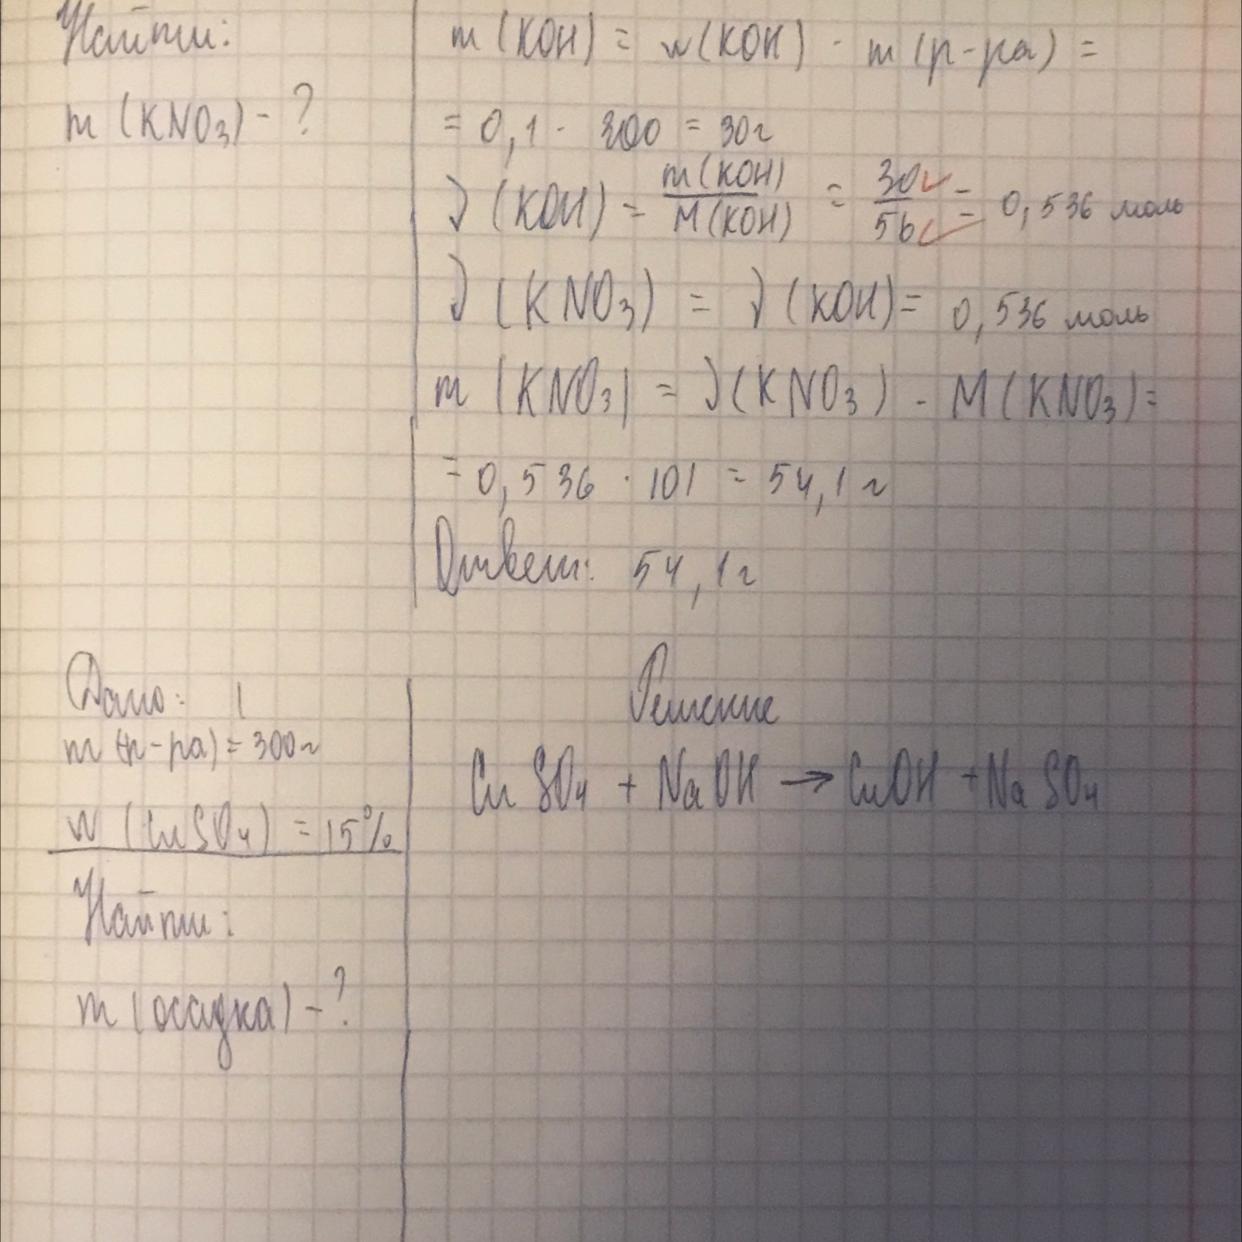 Найти:
m (KNO3) - ?
m (KOH) = w(KOH) · m (р-ра) =
= 0,1 · 300 = 30г
ν (KOH) = m(KOH) / M(KOH) = 30 / 56 = 0,536 моль
ν (KNO3) = ν (KOH) = 0,536 моль
m (KNO3) = ν(KNO3) · M(KNO3) =
= 0,536 · 101 = 54,1 г
Ответ: 54,1 г
Дано:
m (р-ра) = 300г
w (CuSO4) = 15%
Найти:
m (осадка) - ?
Решение
CuSO4 + NaOH → CuOH + NaSO4